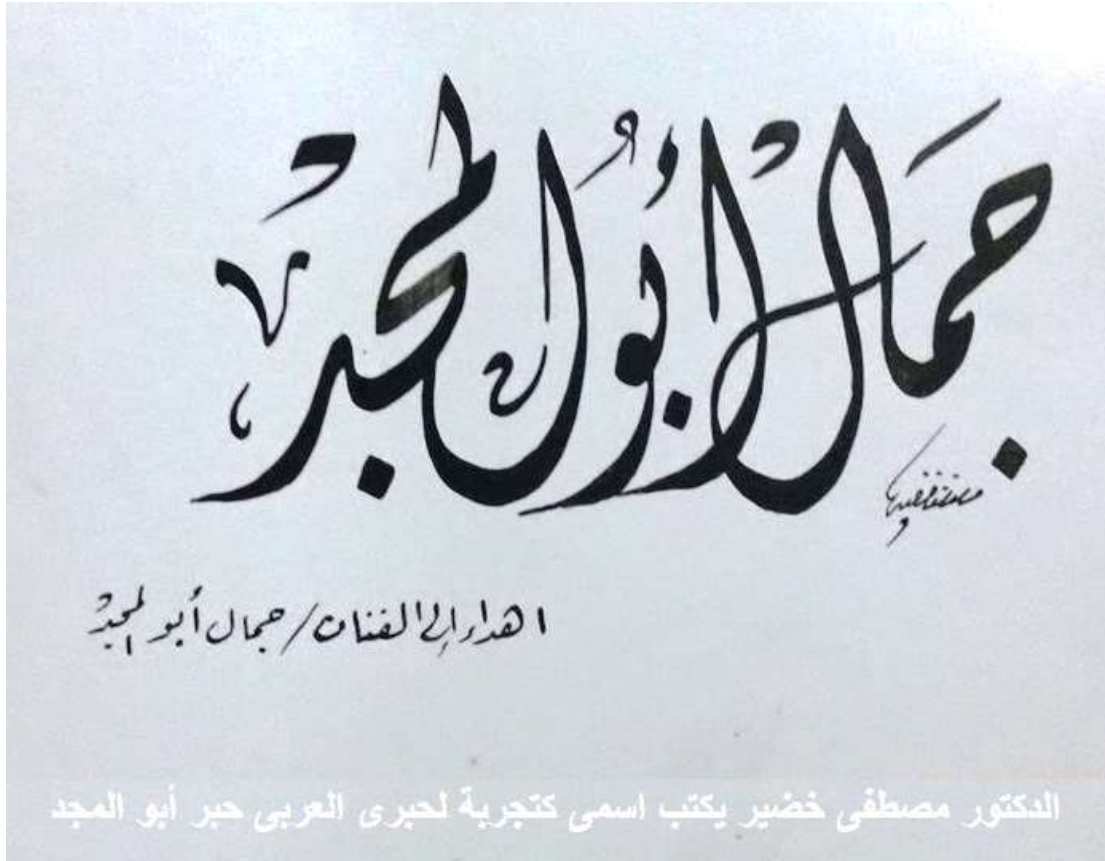 جمال أبو المجد
مصطفى خضير
اهداء إلى الفنان / جمال أبو المجد
الدكتور مصطفى خضير يكتب اسمى كتجربة لحبرى العربى حبر أبو المجد